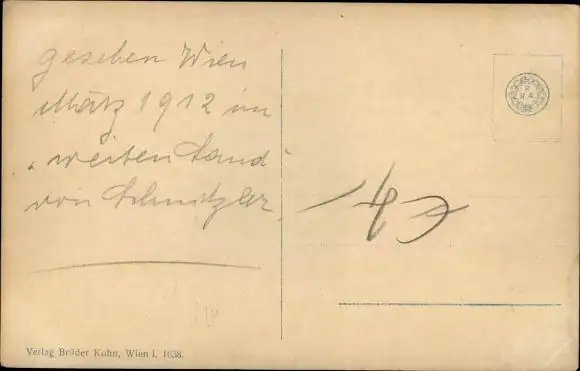 gesehen Wien
März 1912 im
"weiten Land"
von Schnitzler
Verlag Brüder Kohn, Wien I, 1638.